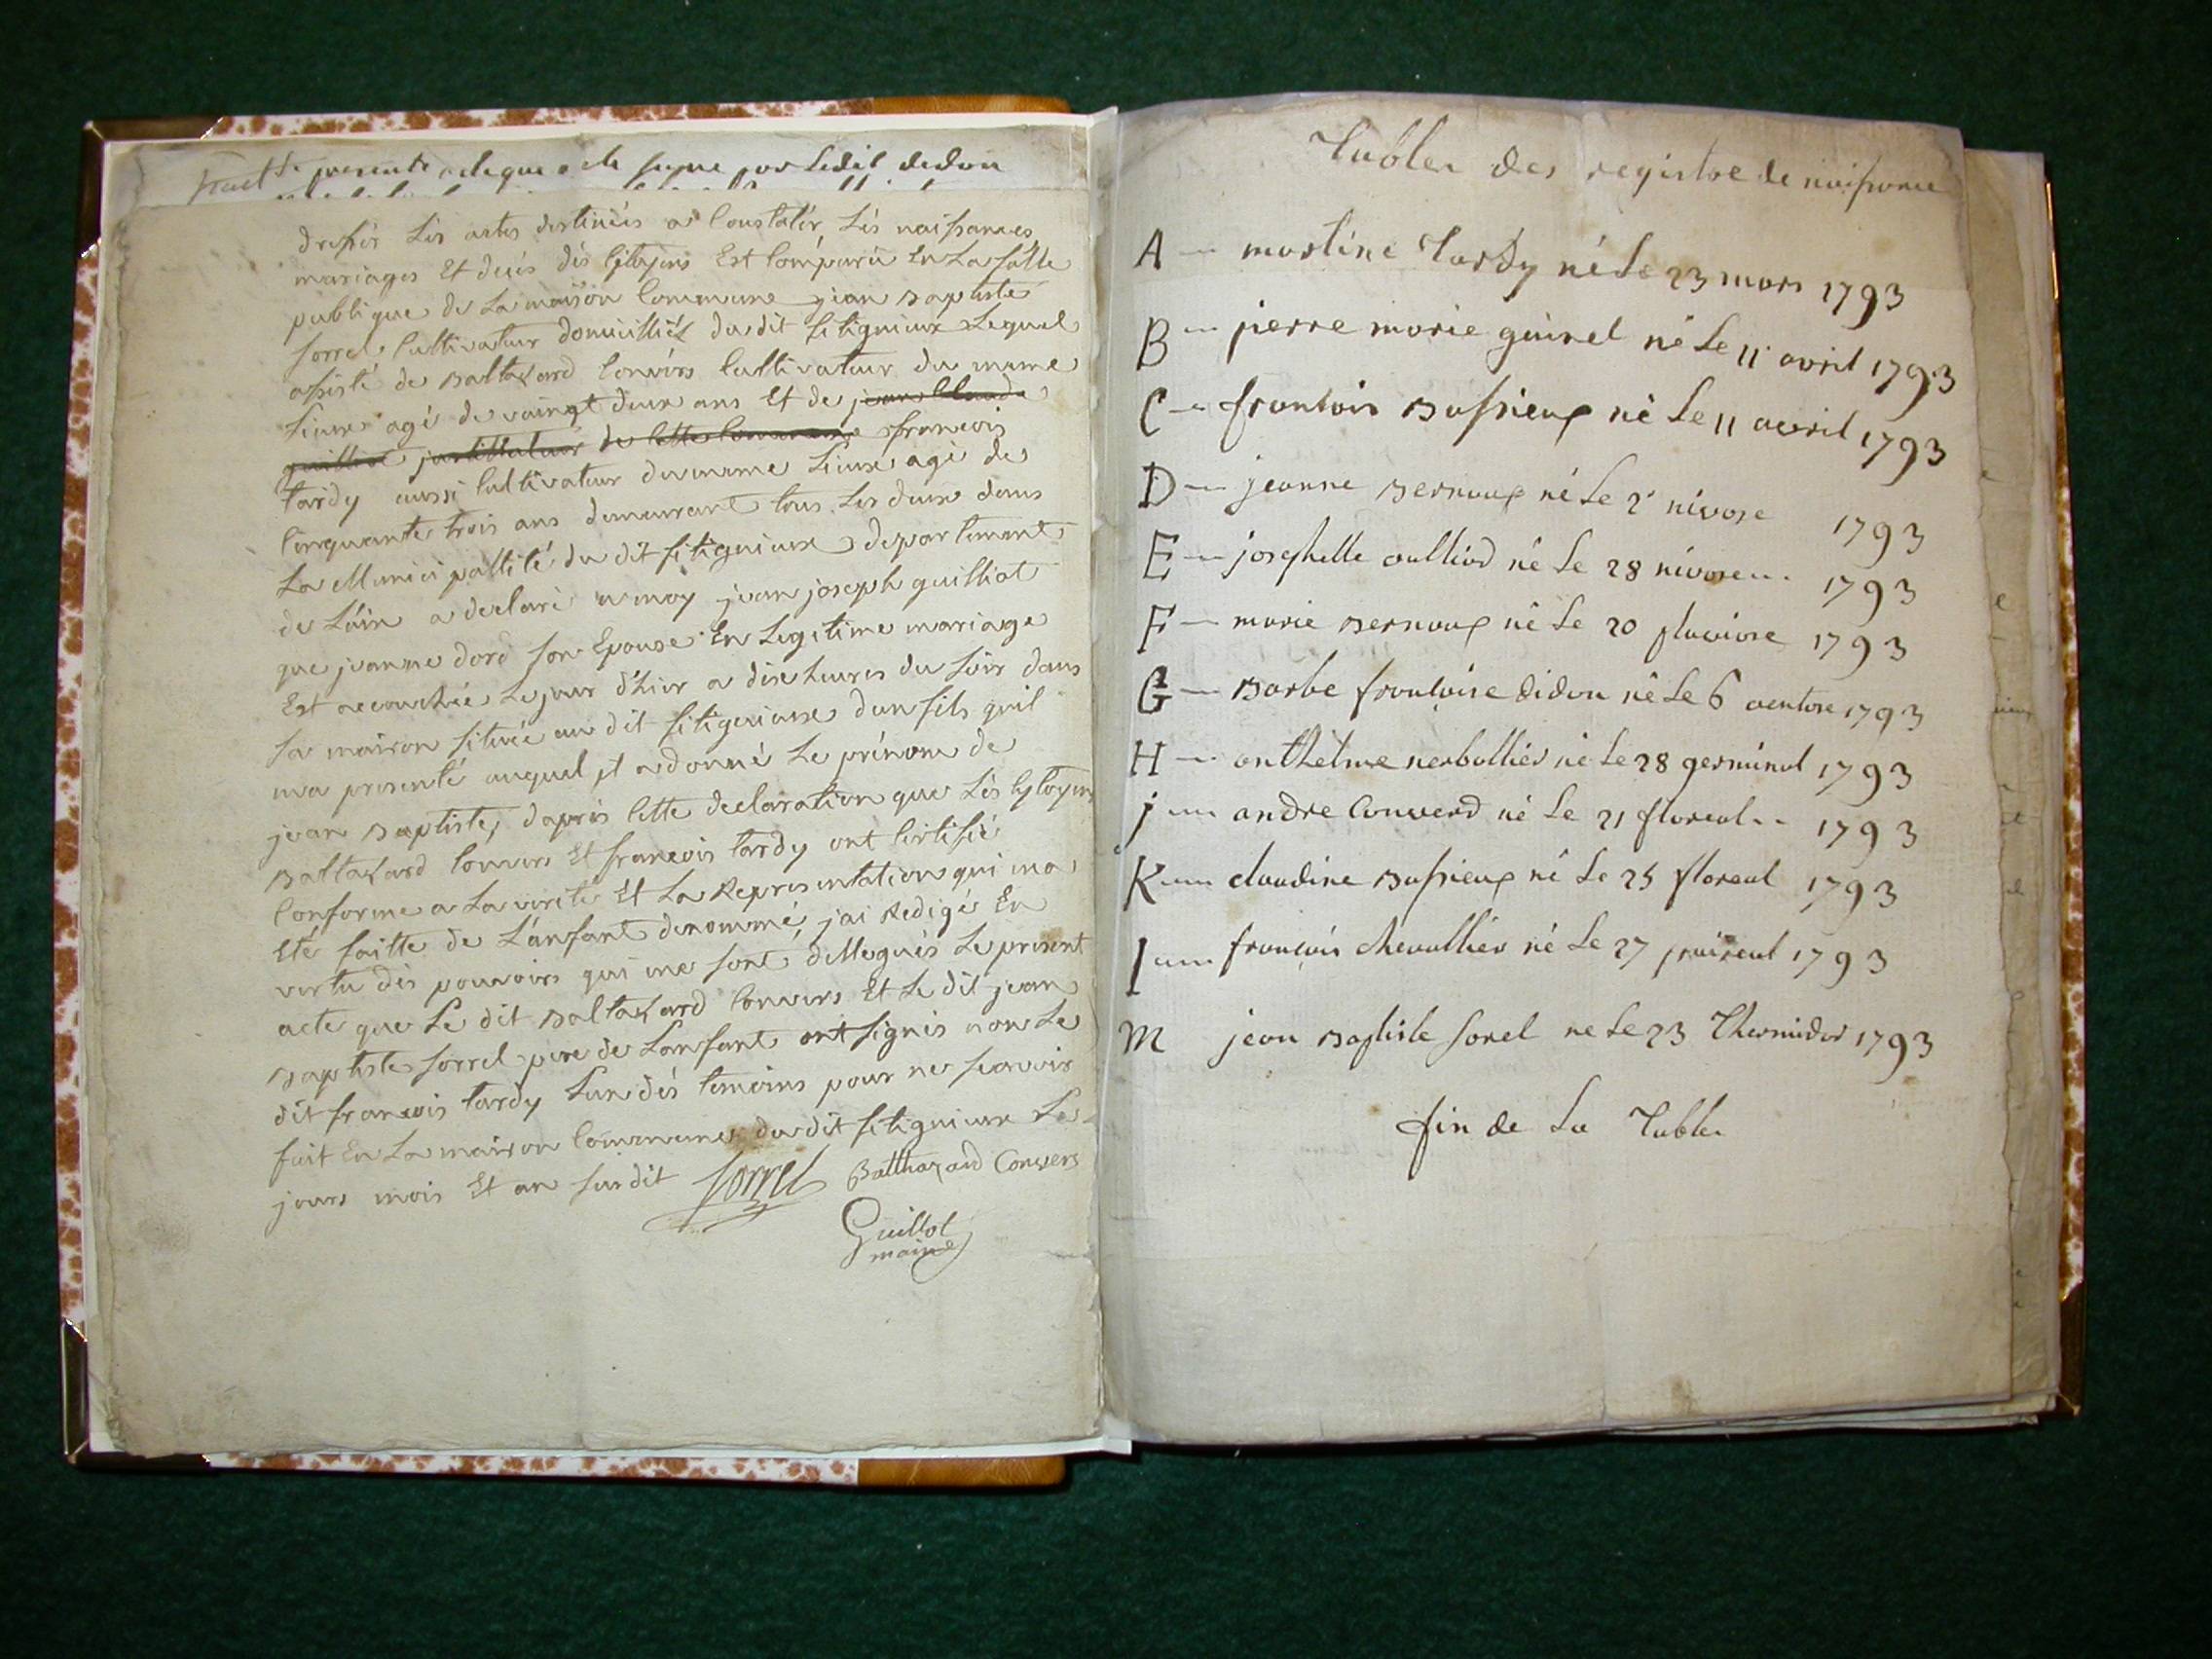 le presente acte que a ete signe par Ledit didon
dressér Lés actes destinées a Constatér Lés naissances
mariages Et decés dés Citoyens Est Comparu En La salle
publique de La maison Commune jean Baptiste
sorrel Cultivateur domicilliéz du dit fitignieux Lequel
assisté de Baltazard Convérs Cultivateur du meme
Lieux agé de vaingt deux ans Et de jean Claude
guilliot justittuteur de Cette Commune francois
tardy aussi Cultivateur du meme Lieux agé de
Cinquante trois ans demeurant tous Les deux dans
La Municipallité du dit fitignieux departement
de L'ain a declaré a moy jean joseph guilliot
que jeanne dord son Epouse En Legitime mariage
Est accouchée Le jour d'hier a dix heures du soir dans
sa maison située au dit fitignieux d'un fils qu'il
m'a presenté auquel jl a donné Le prénom de
jean Baptiste, d'aprés Cette declaration que Lés Cytoyens
Baltazard Convers Et francois tardy ont Certifié
Conforme a La verité Et La Representation qui m'a
Eté faitte de L'anfant denommé, j'ai Redigé En
vertu dés pouvoirs qui me sont dellegués Le present
acte que Le dit Baltazard Convers Et Le dit jean
Baptiste sorrel pere de L'anfant ont signés non Le
dit francois tardy L'un dés temoins pour ne scavoir
fait En La maison Commune du dit fitignieux Les
jours mois Et an susdit Sorrel Balthazard Convers
Guillot
maire
Tables des registre de naissance
A martine Tardy né Le 23 mars 1793
B pierre marie guinel né Le 11 avril 1793
C francois Bussieux né Le 11 avvril 1793
D jeanne Bernoux né Le 2 nivose 1793
E josephette oulliod né Le 28 nivose 1793
F marie Bernoux né Le 20 pluviose 1793
G Barbe francoise didon né Le 6 ventose 1793
H anthelme nerbollier né Le 28 germinal 1793
j andre Converd né Le 21 floreal 1793
K claudine Bussieux né Le 25 floreal 1793
I francois chevallier né Le 27 praireal 1793
M jean Baptiste sorel ne Le 23 Thermidor 1793
fin de La Tables